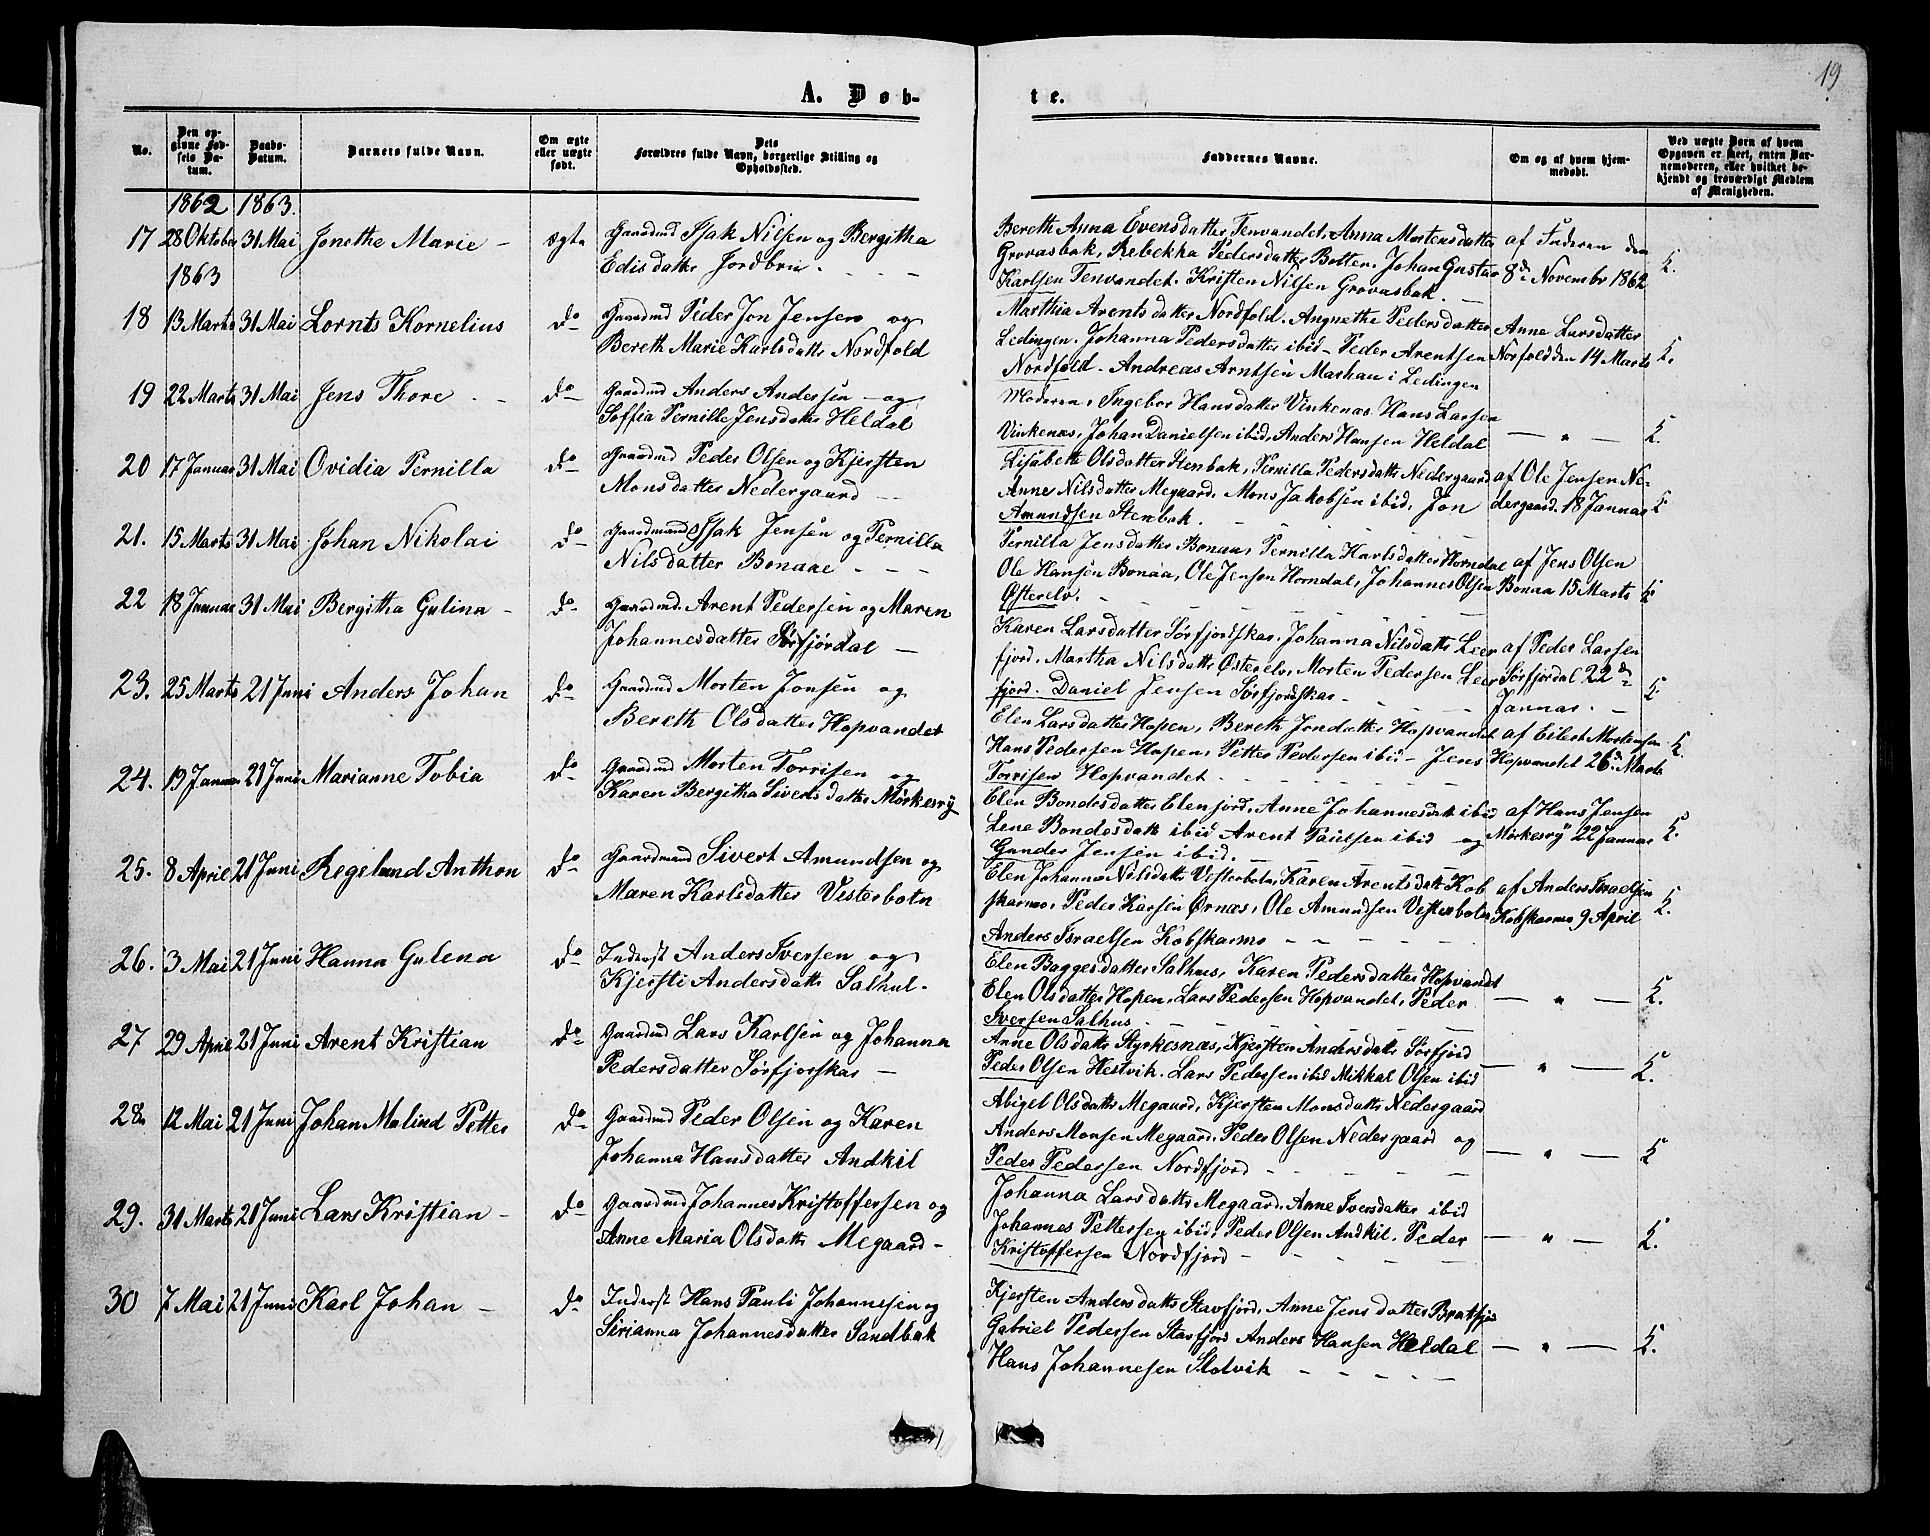 19
A. Døb-
te.
No.
Den op-
givne Fød-
sels Da-
tum.
Daabs-
Datum.
Barnets fulde Navn.
Om ægte
eller uægte
født.
Dets
Forældres fulde Navn, borgerlige Stilling og
Opholdssted.
Faddernes Navne.
Om og af hvem hjem-
medøbt.
Ved uægte Børn af hvem
Opgaven er skeet, enten Bar-
nemoderen, eller hvilket be-
kjendt og troværdigt Medlem
af Menigheden.
1862 1863.
17 28 Oktober 31 Mai Jonethe Marie - ægte Gaardmd Isak Nilsen og Bergitha
Edisdatter Jordbru.
Bereth Anna Evensdatter Tenvandet, Anna Mortensdatter
Grovasbak, Rebekka Pedersdatter Botten. Johan Gustav
Karlsen Tenvandet. Kristen Nilsen Grovasbak.
af Faderen den
8de November 1862
1863
18 13 Marts 31 Mai Lornts Kornelius do Gaardmd Peder Jon Jensen og
Bereth Marie Karlsdatte Nordfold
Marthia Arentsdatter Nordfold. Angnethe Pedersdatter
Ledingen. Johanna Pedersdatter ibid - Peder Arentsen
Nordfold. Andreas Arntsen Marhau i Ledingen
Anne Larsdatter
Norfold den 14 Marts
19 22 Marts 31 Mai Jens Thore - do Gaardmd Anders Andersen og
Soffia Pernille Jensdatter Heldal
Moderen, Ingebor Hansdatter Vinkenæs. Hans Larsen
Vinkenæs, Johan Danielsen ibid, Anders Hansen Heldal
— " —
20 17 Januar 31 Mai Ovidia Pernilla do Gaardmd Peder Olsen og Kjersten
Monsdatter Nedergaard
Lisabeth Olsdatter Stenbak, Pernilla Pedersdatte Nedergaard
Anne Nilsdatter Megaard. Mons Jakobsen ibid, Jon
Amundsen Stenbak.
af Ole Jensen Ne-
dergaard. 18 Januar
21. 15 Marts 31 Mai Johan Nikolai do Gaardmand Isak Jensen og Pernilla
Nilsdatter Bonaae
Pernilla Jensdatter Bonaa, Pernilla Karlsdatter Horndal
Ole Hansen Bonaa, Ole Jenson Horndal, Johannes Olsen
Østerelv.
af Jens Olsen
Bonaa 15 Marts
22 18 Januar 31 Mai Bergitha Gulina - do Gaardmd. Arent Pedersen og Maren
Johannesdatter Sørfjordal —
Karen Larsdatter Sørfjordskar. Johanna Nilsdatte Leer
fjord. Martha Nilsdatte Østerelv, Morten Pedersen Leer
fjord. Daniel Jensen Sørfjordskar
af Peder Larsen
Sørfjordal 22de
Januar.
23. 25 Marts 21 Juni Anders Johan do Gaardmd Morten Jonsen og
Bereth Olsdatter Hopvandet
Elen Larsdatter Hopen, Bereth Jondatter Hopvandet
Hans Pedersen Hopen, Petter Pedersen ibid - Jens
Torrisen Hopvandet.
af Eilert Mortensen
Hopvandet 26de Marts
24. 19 Januar 21 Juni Marianne Tobia do Gaardmd Morten Torrisen og
Karen Bergitha Siverts datter Mørkesry
Elen Bondesdatter Elenfjord, Anne Johannesdatt ibid
Lene Bondesdatt ibid Arent Paulsen ibid og
Gunder Jensen ibid.
af Hans Jensen
Mørkesry 22 Januar
25. 8 April 21 Juni Regelund Anthon do Gaardmand Sivert Amundsen og
Maren Karlsdatter Vesterbotn
Elen Johanna Nilsdatte Vesterbotn, Karen Arentsdatt Kob
skarmo, Peder Larsen Ørnæs, Ole Amundsen Vesterbotn
Anders Israelsen Kobskarmo
af Anders Israelsen
Kobskarmo 9 April
26. 3 Mai 21 Juni Hanna Gulena do Inderst Anders Iversen og
Kjersti Andersdatte Salhul.
Elen Baggesdatter Salhus, Karen Pedersdatter Hopvandt
Elen Olsdatter Hopen, Lars Pedersen Hopvandet, Peder
Iversen Salhus
— " —
27 29 April 21 Juni Arent Kristian do Gaardmd Lars Karlsen og Johanna
Pedersdatter Sørfjorskar —
Anne Olsdatte Styrkesnæs, Kjersten Andersdatte Sørfjord
Peder Olsen Hestvik. Lars Pedersen ibid Mikkal Olsen ibid
— " —
28. 12 Mai 21 Juni Johan Malind Petter do Gaardmd Peder Olsen og Karen
Johanna Hansdatter Andkil
Abigel Olsdatte Megaard, Kjersten Monsdatte Nedergaard
Anders Monsen Megaard. Peder Olsen Nedergaard og
Peder Pedersen Nordfjord
— " —
29. 31 Marts 21 Juni Lars Kristian - do Gaardmd Johannes Kristoffersen og
Anne Maria Olsdatte Megaard -
Johanna Larsdatte Megaard. Anne Iversdatter ibid
Johannes Pettersen ibid, Peder Olsen Andkil. Peder
Kristoffersen Nordfjord
— " —
30 7 Mai 21 Juni Karl Johan - do Inderst Hans Pauli Johannesen og
Sirianna Johannesdatter Sandbak
Kjersten Andersdatte Stavfjord. Anne Jensdatter Bratfjor
Gabriel Pedersen Stavfjord Anders Hansen Heldal
Hans Johannesen Slotvik
— " —